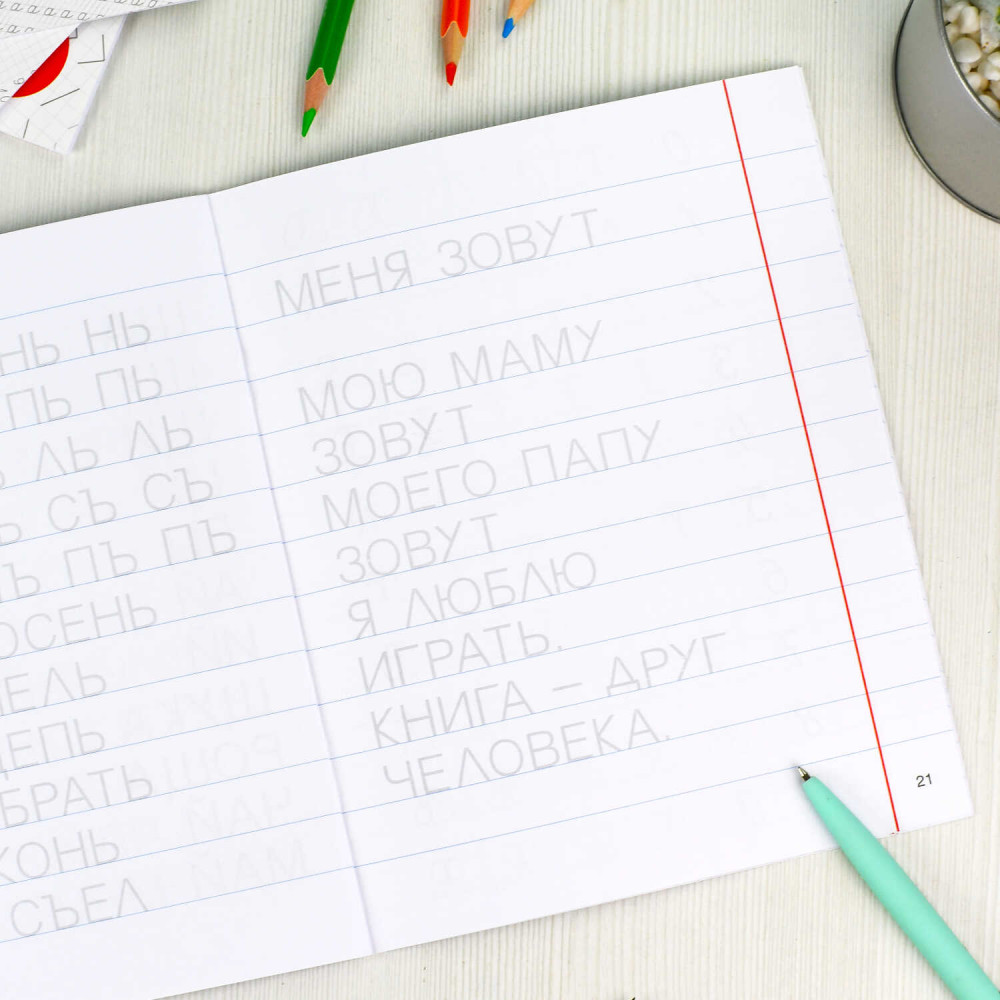 НЬ НЬ
ПЬ ПЬ
ЛЬ ЛЬ
СЪ СЪ
ПЪ ПЪ
ОСЕНЬ
БРАТЬ
КОНЬ
СЪЕЛ
МЕНЯ ЗОВУТ
МОЮ МАМУ
ЗОВУТ
МОЕГО ПАПУ
ЗОВУТ
Я ЛЮБЛЮ
ИГРАТЬ.
КНИГА – ДРУГ
ЧЕЛОВЕКА.
21